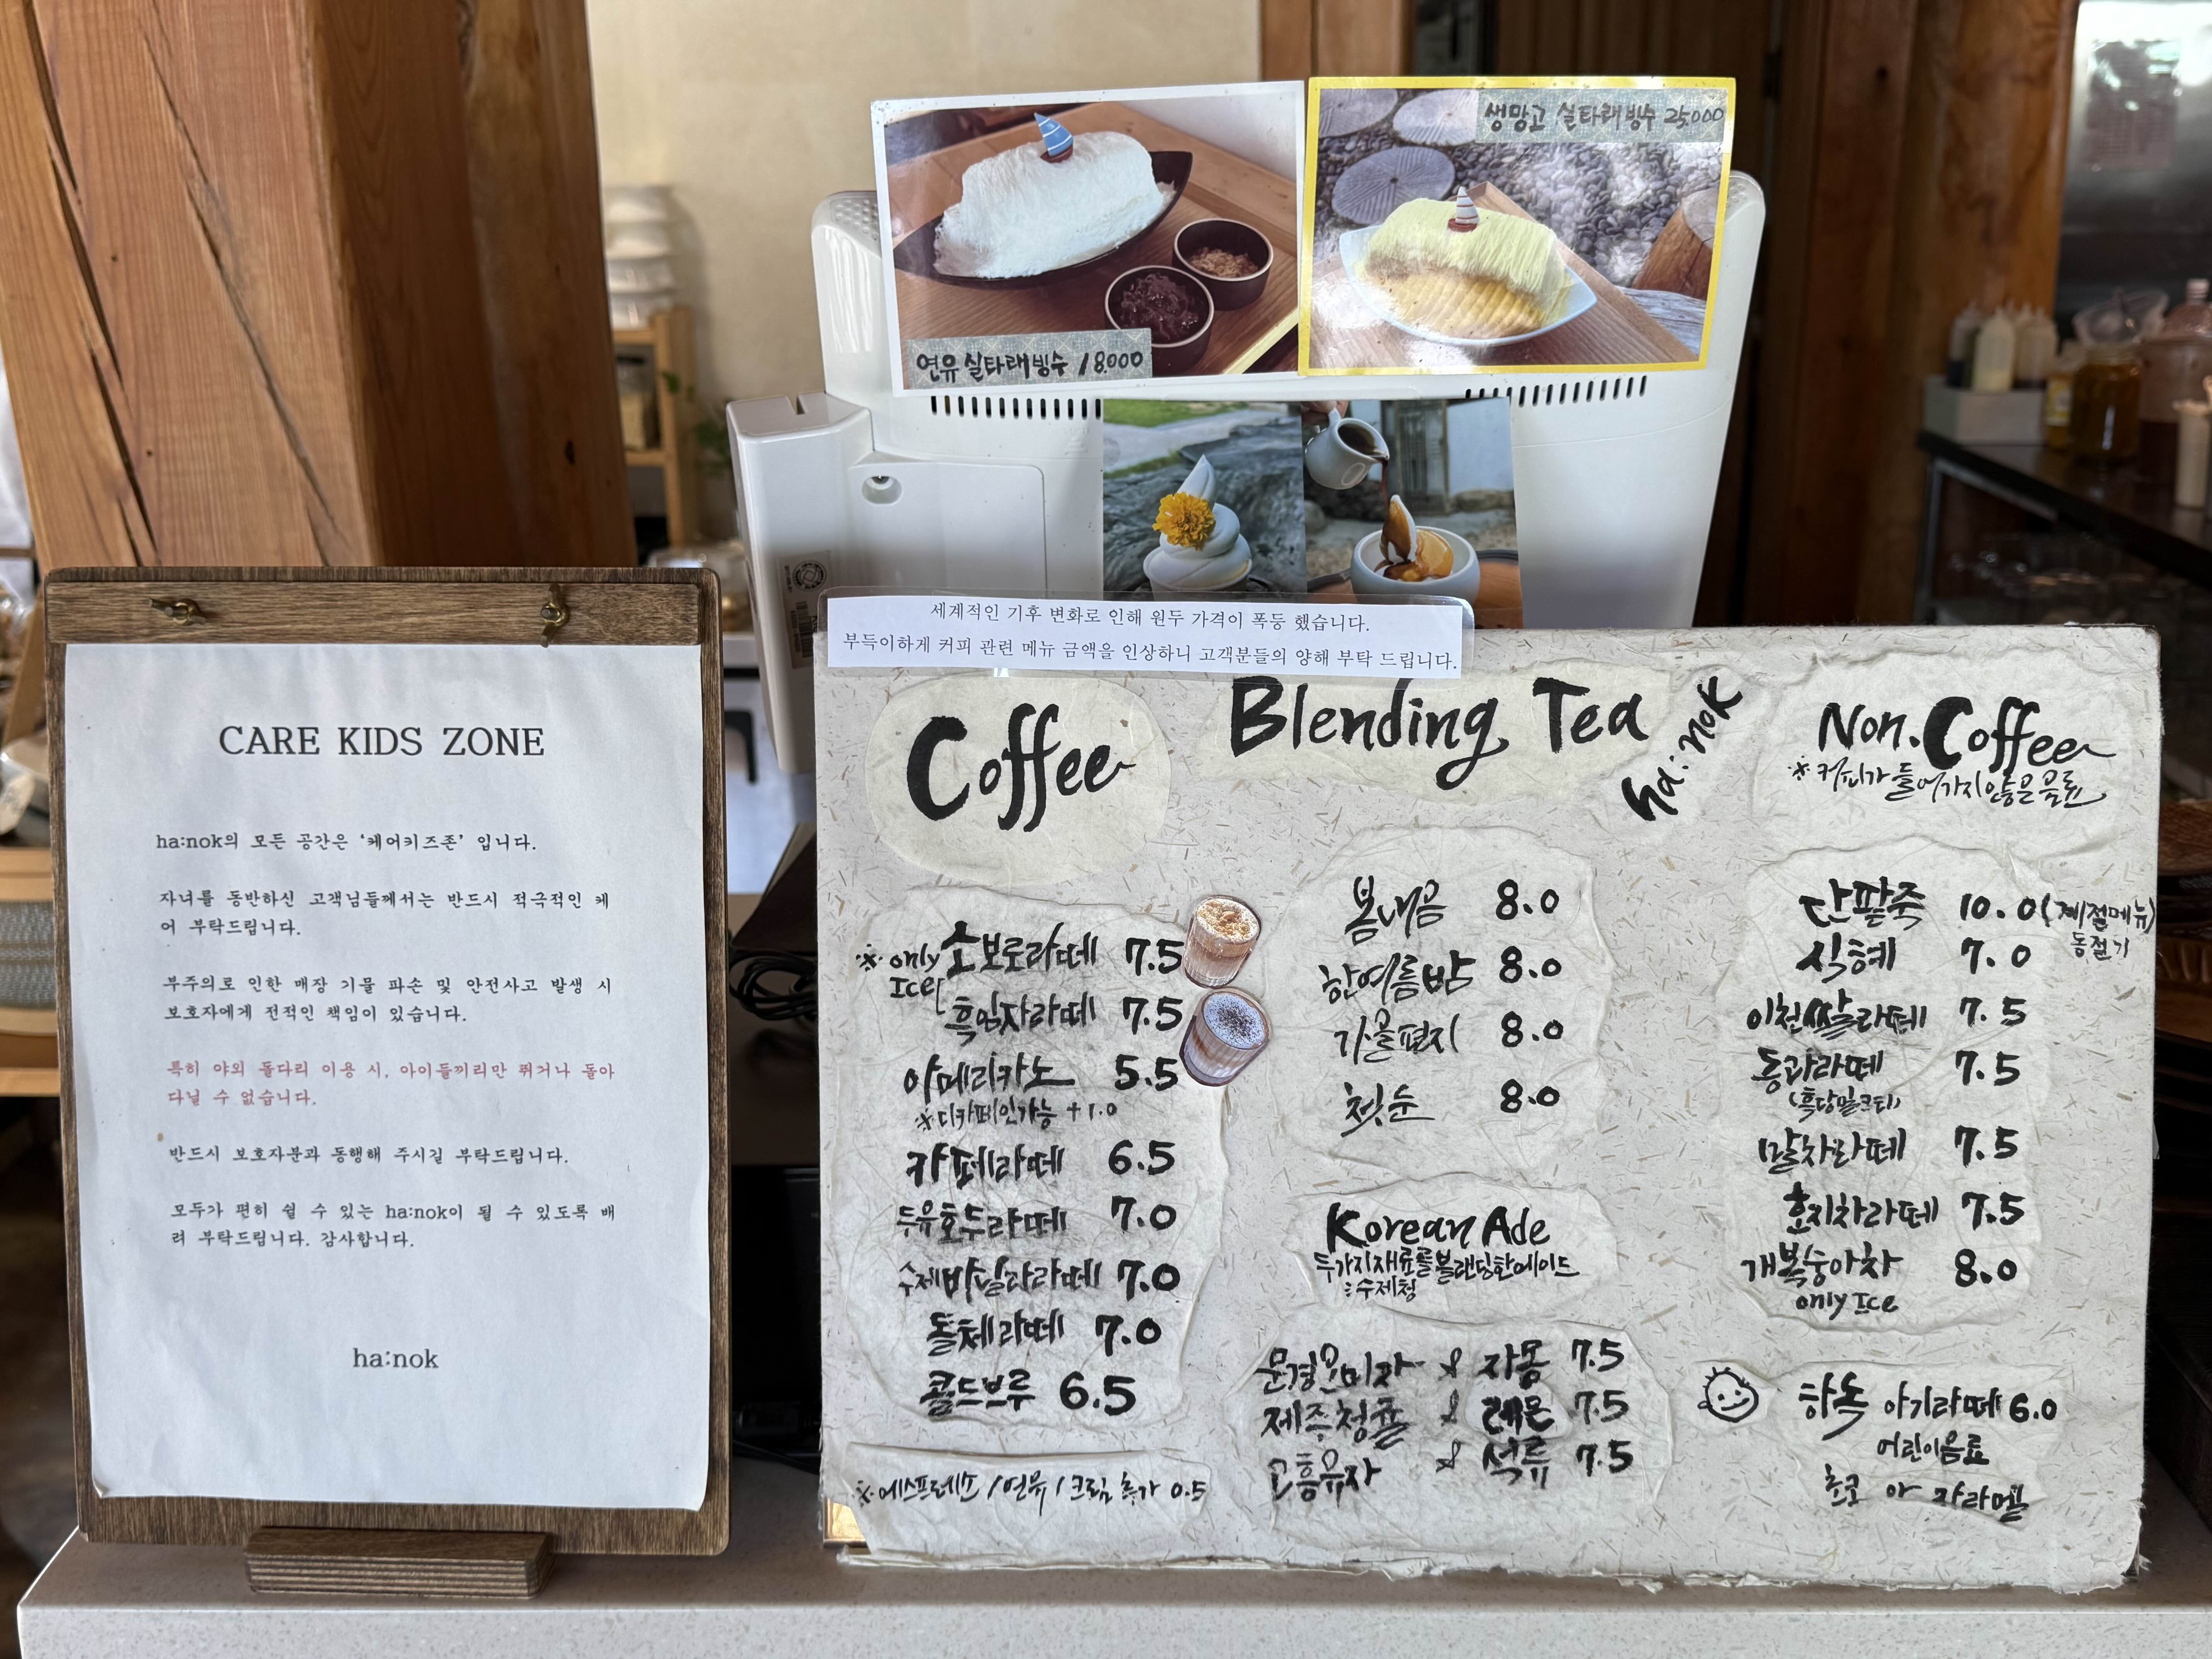 생망고 실타래빙수 25,000
연유 실타래빙수 18,000
세계적인 기후 변화로 인해 원두 가격이 폭등 했습니다.
부득이하게 커피 관련 메뉴 금액을 인상하니 고객분들의 양해 부탁 드립니다.
CARE KIDS ZONE
ha:nok의 모든 공간은 ‘케어키즈존’ 입니다.
자녀를 동반하신 고객님들께서는 반드시 적극적인 케
어 부탁드립니다.
부주의로 인한 매장 기물 파손 및 안전사고 발생 시
보호자에게 전적인 책임이 있습니다.
특히 야외 돌다리 이용 시, 아이들끼리만 뛰거나 돌아
다닐 수 없습니다.
반드시 보호자분과 동행해 주시길 부탁드립니다.
모두가 편히 쉴 수 있는 ha:nok이 될 수 있도록 배
려 부탁드립니다. 감사합니다.
ha:nok
Coffee
※ only Ice
소보로라떼 7.5
흑임자라떼 7.5
아메리카노 5.5
※디카페인가능 +1.0
카페라떼 6.5
두유호두라떼 7.0
수제바닐라라떼 7.0
돌체라떼 7.0
콜드브루 6.5
※에스프레소/연유/크림 추가 0.5
Blending Tea
ha:nok
봄내음 8.0
한여름밤 8.0
가을편지 8.0
첫눈 8.0
Korean Ade
두가지재료를블랜딩한에이드
:수제청
문경오미자 & 자몽 7.5
제주청귤 & 레몬 7.5
고흥유자 & 석류 7.5
Non.Coffee
※커피가 들어가지않은음료
단팥죽 10.0 (계절메뉴)
동절기
식혜 7.0
이천쌀라떼 7.5
동과라떼 7.5
(흑당밀크티)
말차라떼 7.5
호지차라떼 7.5
개복숭아차 8.0
only Ice
하녹 아기라떼 6.0
어린이음료
초코 or 카라멜